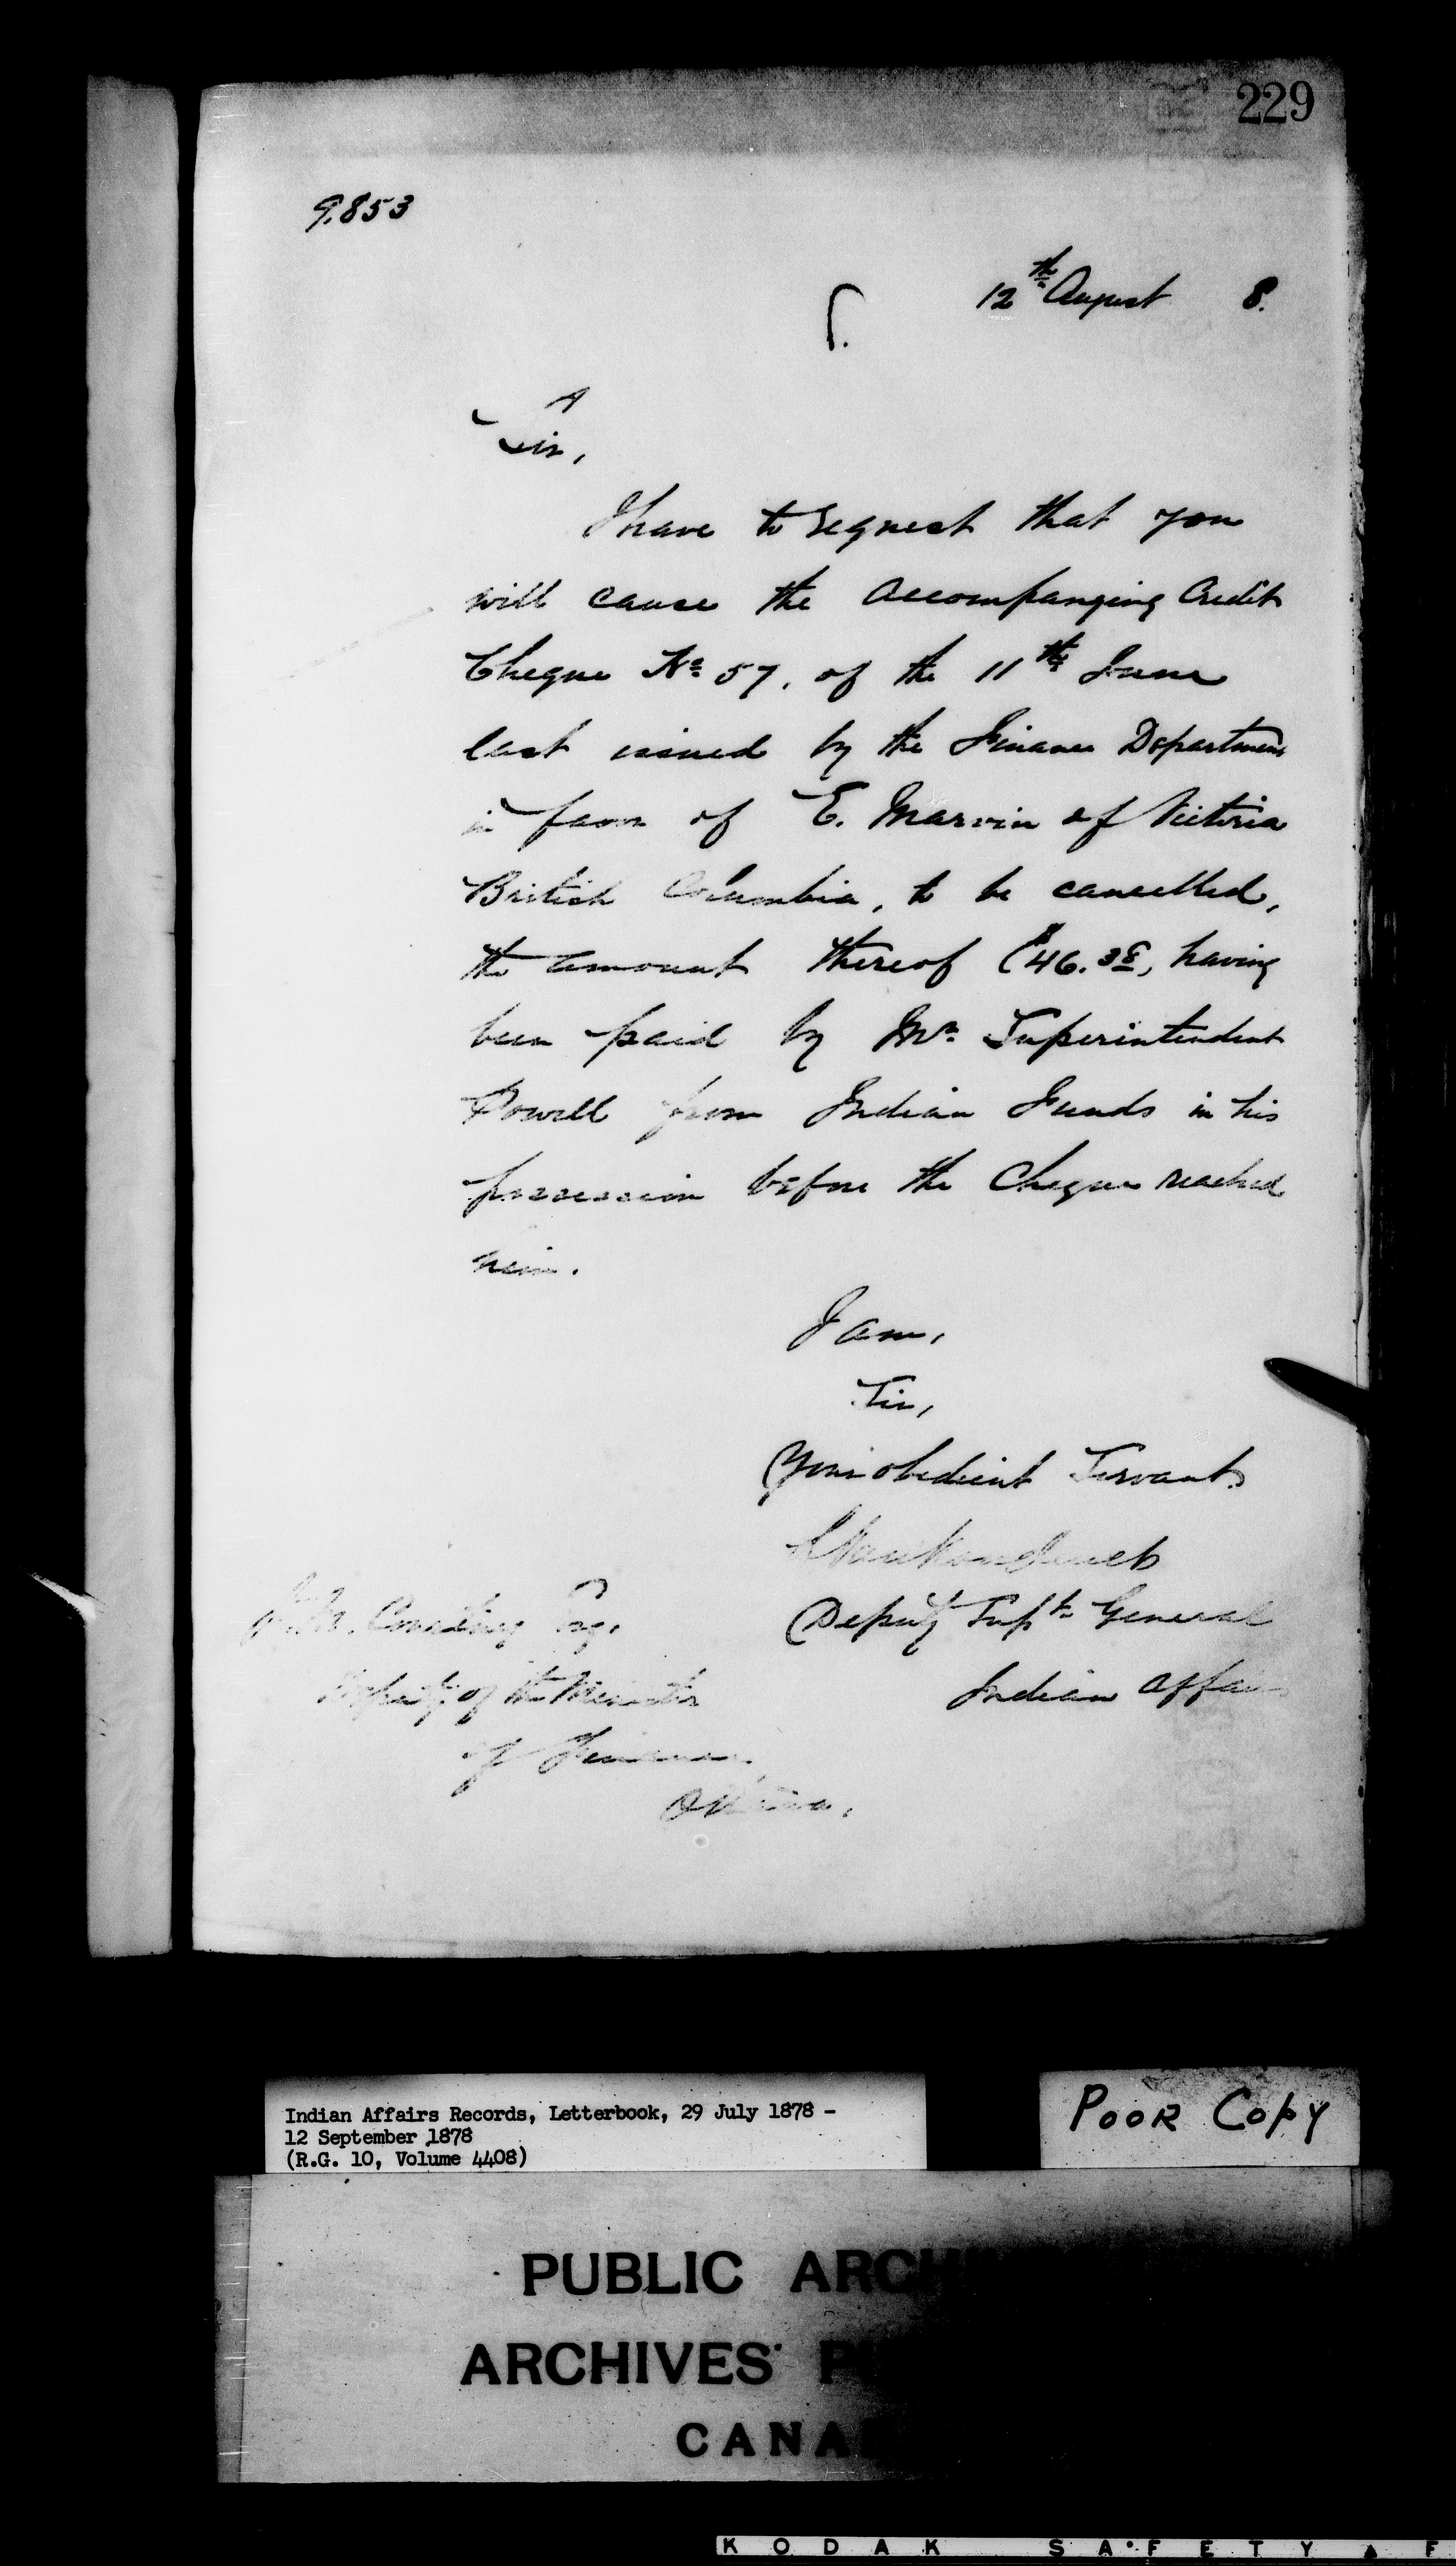 229
9.853
12th August 8.
Sir,
I have to request that you
will cause the accompanying Credit
Cheque No. 57, of the 11th June
last issued by the Finance Department
in favor of E. Marvin of Victoria
British Columbia, to be cancelled,
the amount thereof ($46.38, having
been paid by Mr. Superintendent
Powell from Indian Funds in his
possession before the Cheque reached
him.
I am,
Sir,
Your obedient Servant
Deputy Supt. General
Indian Affairs
Courtney Esq.
Deputy of the Minister
of Finance,
Ottawa.
Indian Affairs Records, Letterbook, 29 July 1878 -
12 September 1878
(R.G. 10, Volume 4408)
POOR COPY
PUBLIC ARCH
ARCHIVES P
CANA
KODAK SAFETY F